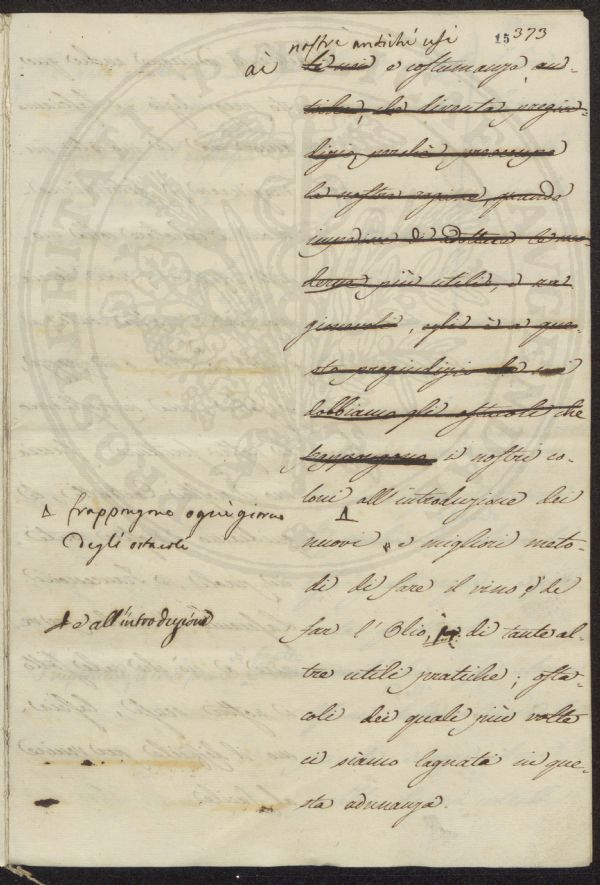 15 373
nostri antichi usi
ai li usi e costumanze an-
tiche, che diventa pregiu-
dizio, perchè preoccupa
la nostra ragione, quando
impedisce di adottare le mo-
derne più utili, e ra-
gionevoli, egli è a que-
sto pregiudizio che noi
dobbiamo gli ostacoli che
frappongono i nostri co-
loni all'introduzione dei
Δ frappongono ogni giorno
degli ostacoli
nuovi, e migliori meto-
di di fare il vino e di
far l'Olio, di tante al-
e all'introduzione
tre utili pratiche; osta-
coli dei quali più volte
ci siamo lagnati in que-
sta adunanza.